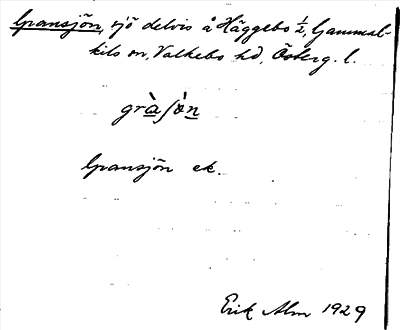 Gransjön, sjö delvis å Häggebo 1/2, Gammal-
kils sn, Valkebo hd, Österg. l.
gràsjòn
Gransjön ek.
Erik Alm 1929